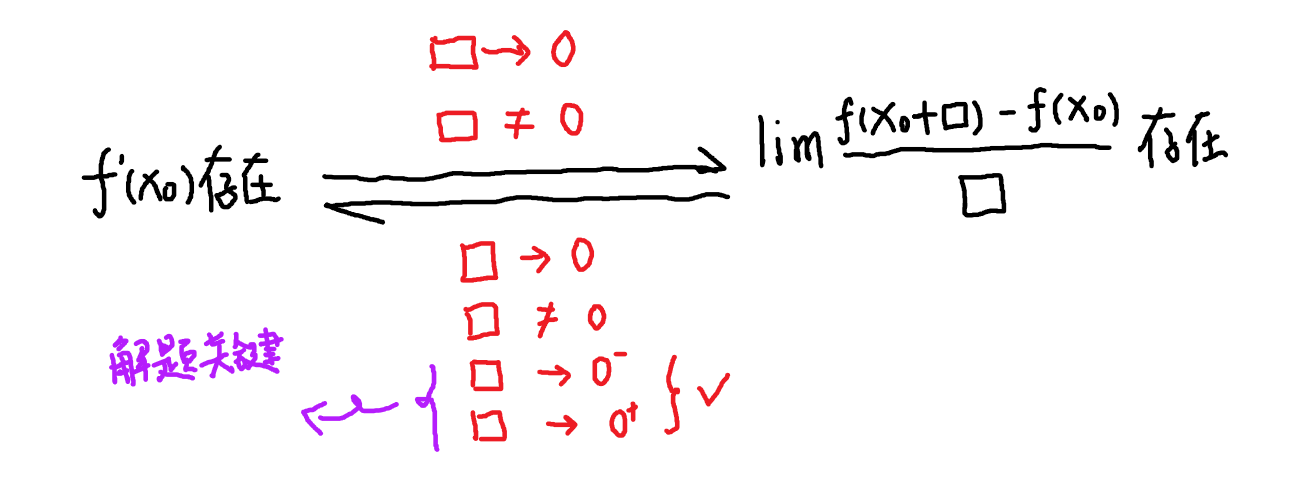 □→0
□ ≠ 0
f'(x₀)存在
lim (f(x₀+□) - f(x₀))/□ 存在
□ → 0
□ ≠ 0
□ → 0⁻
□ → 0⁺
✓
解题关键